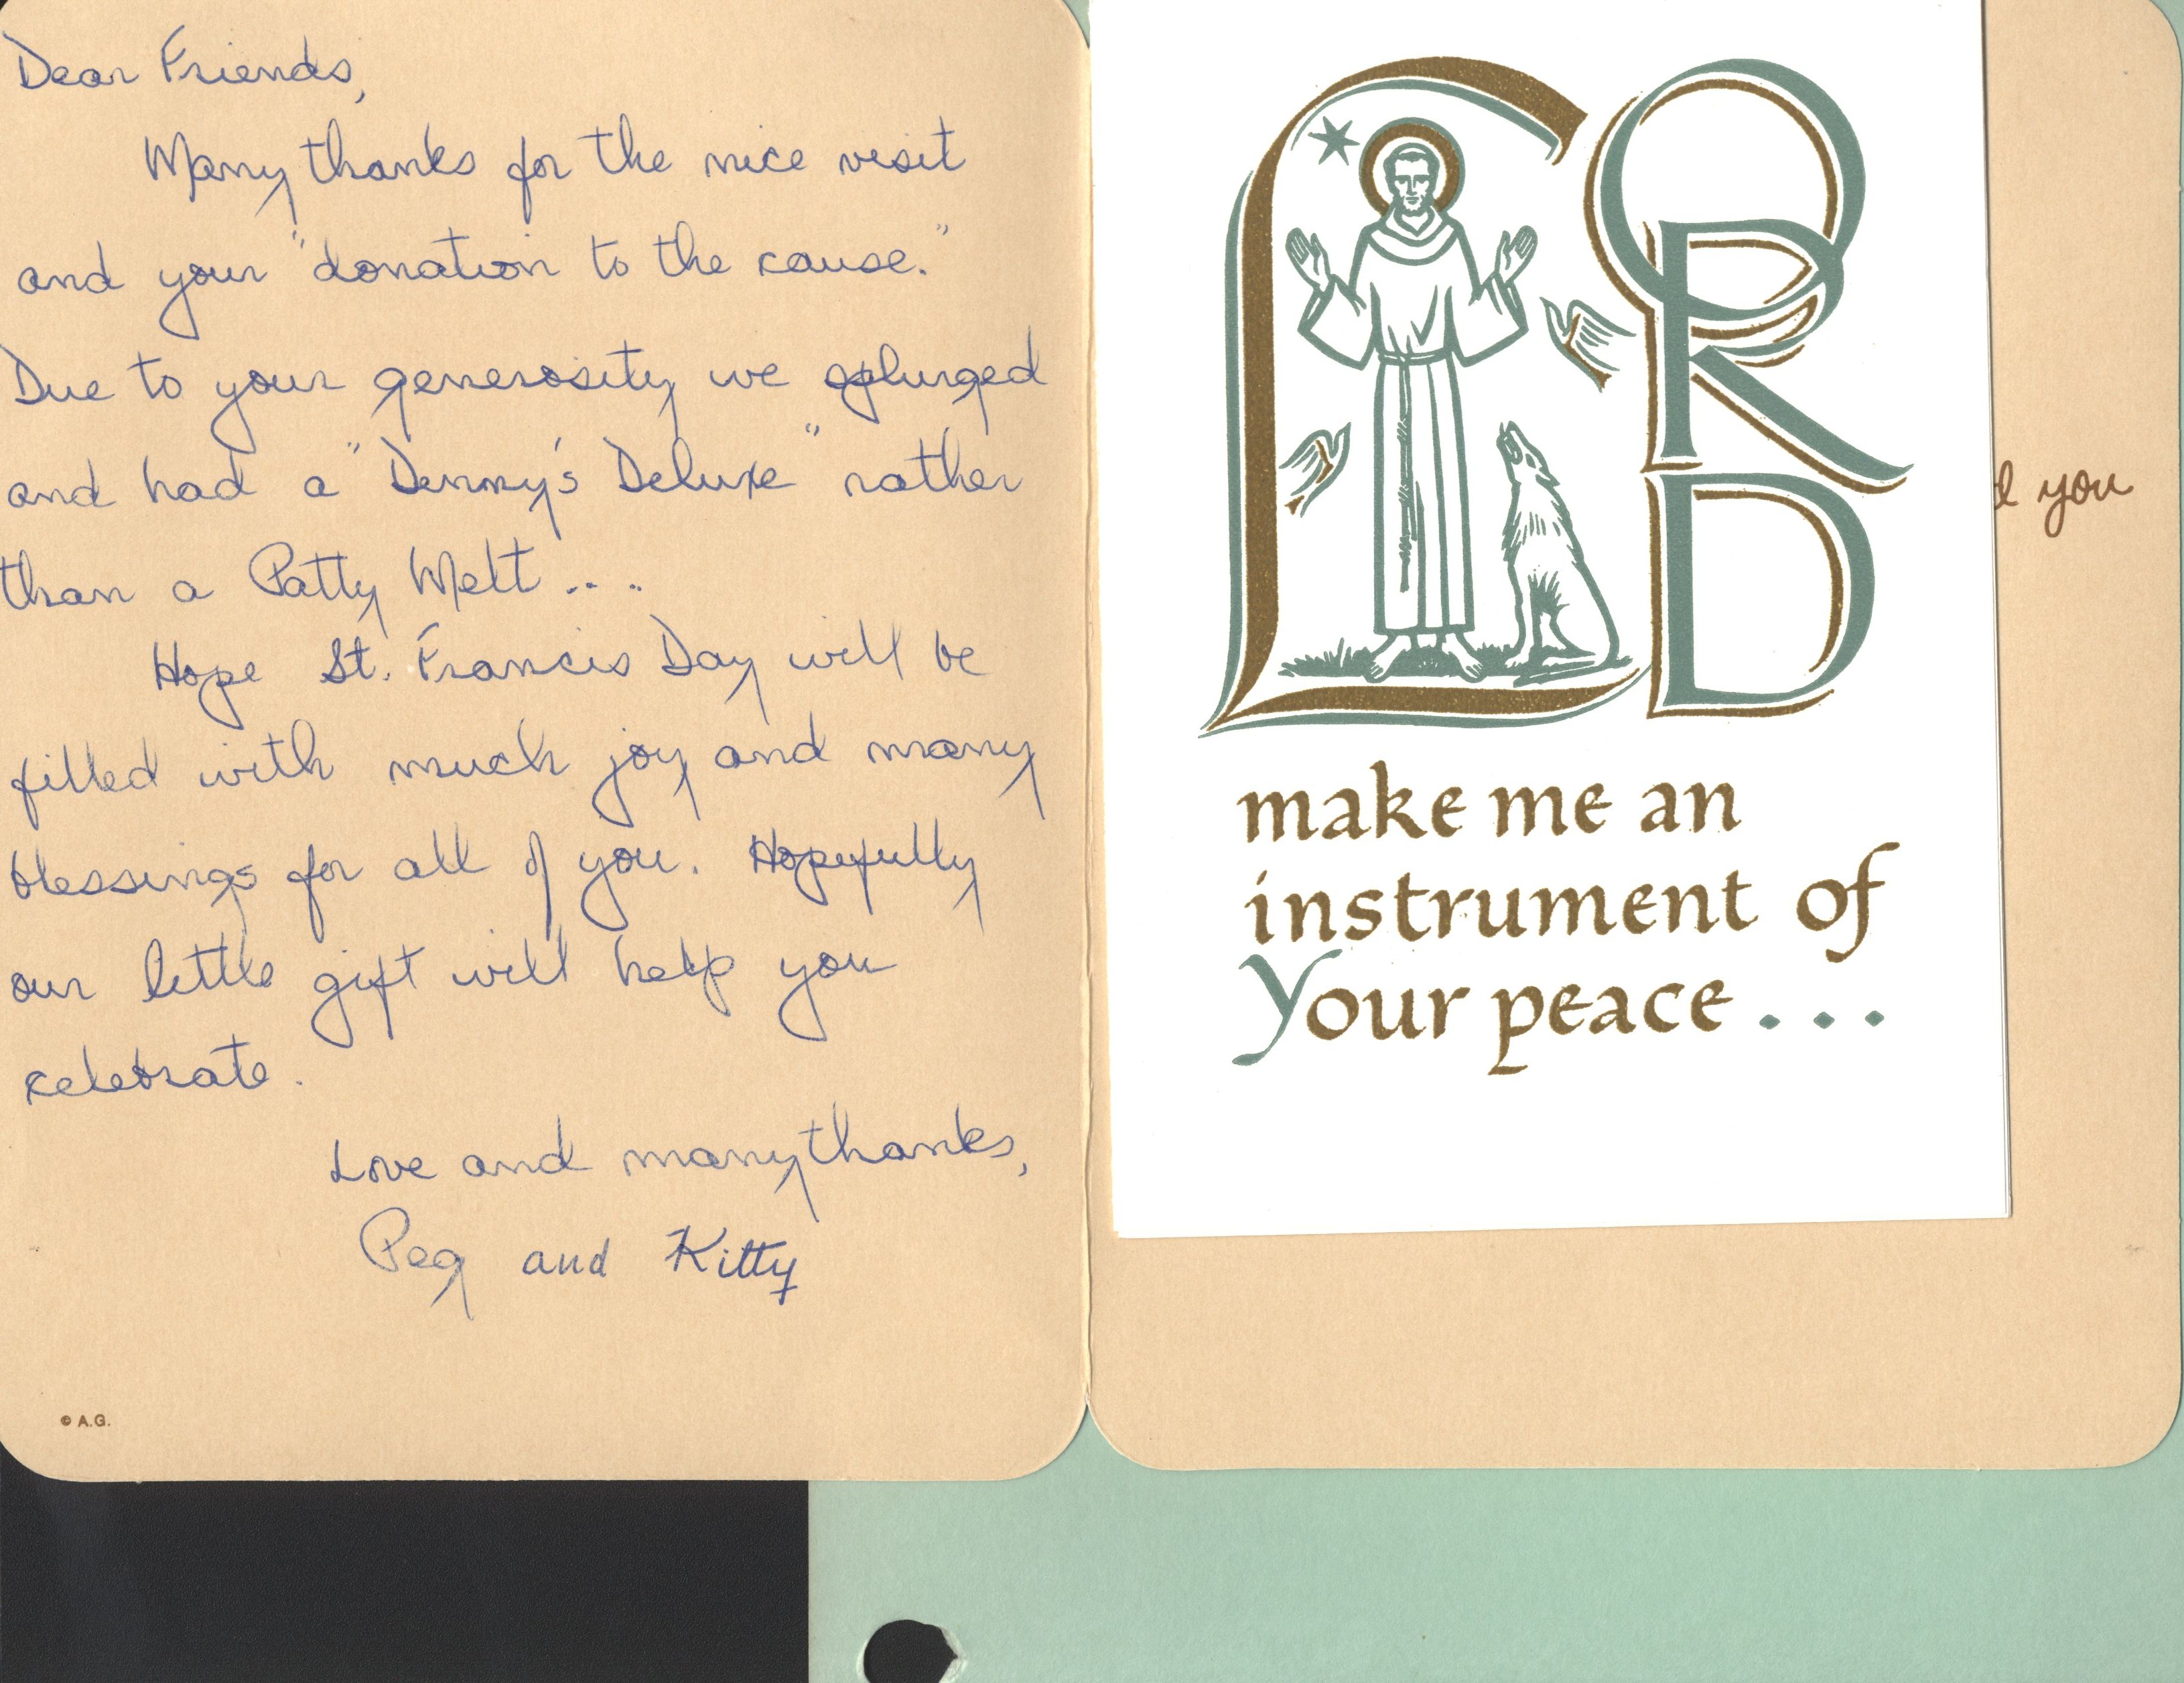 Dear Friends,
Many thanks for the nice visit
and your "donation to the cause."
Due to your generosity we splurged
and had a "Denny's Deluxe" rather
than a Patty Melt....
Hope St. Francis Day will be
filled with much joy and many
blessings for all of you. Hopefully
our little gift will help you
celebrate.
Love and many thanks,
Peg and Kitty
© A.G.
LORD
make me an
instrument of
Your peace...
d you